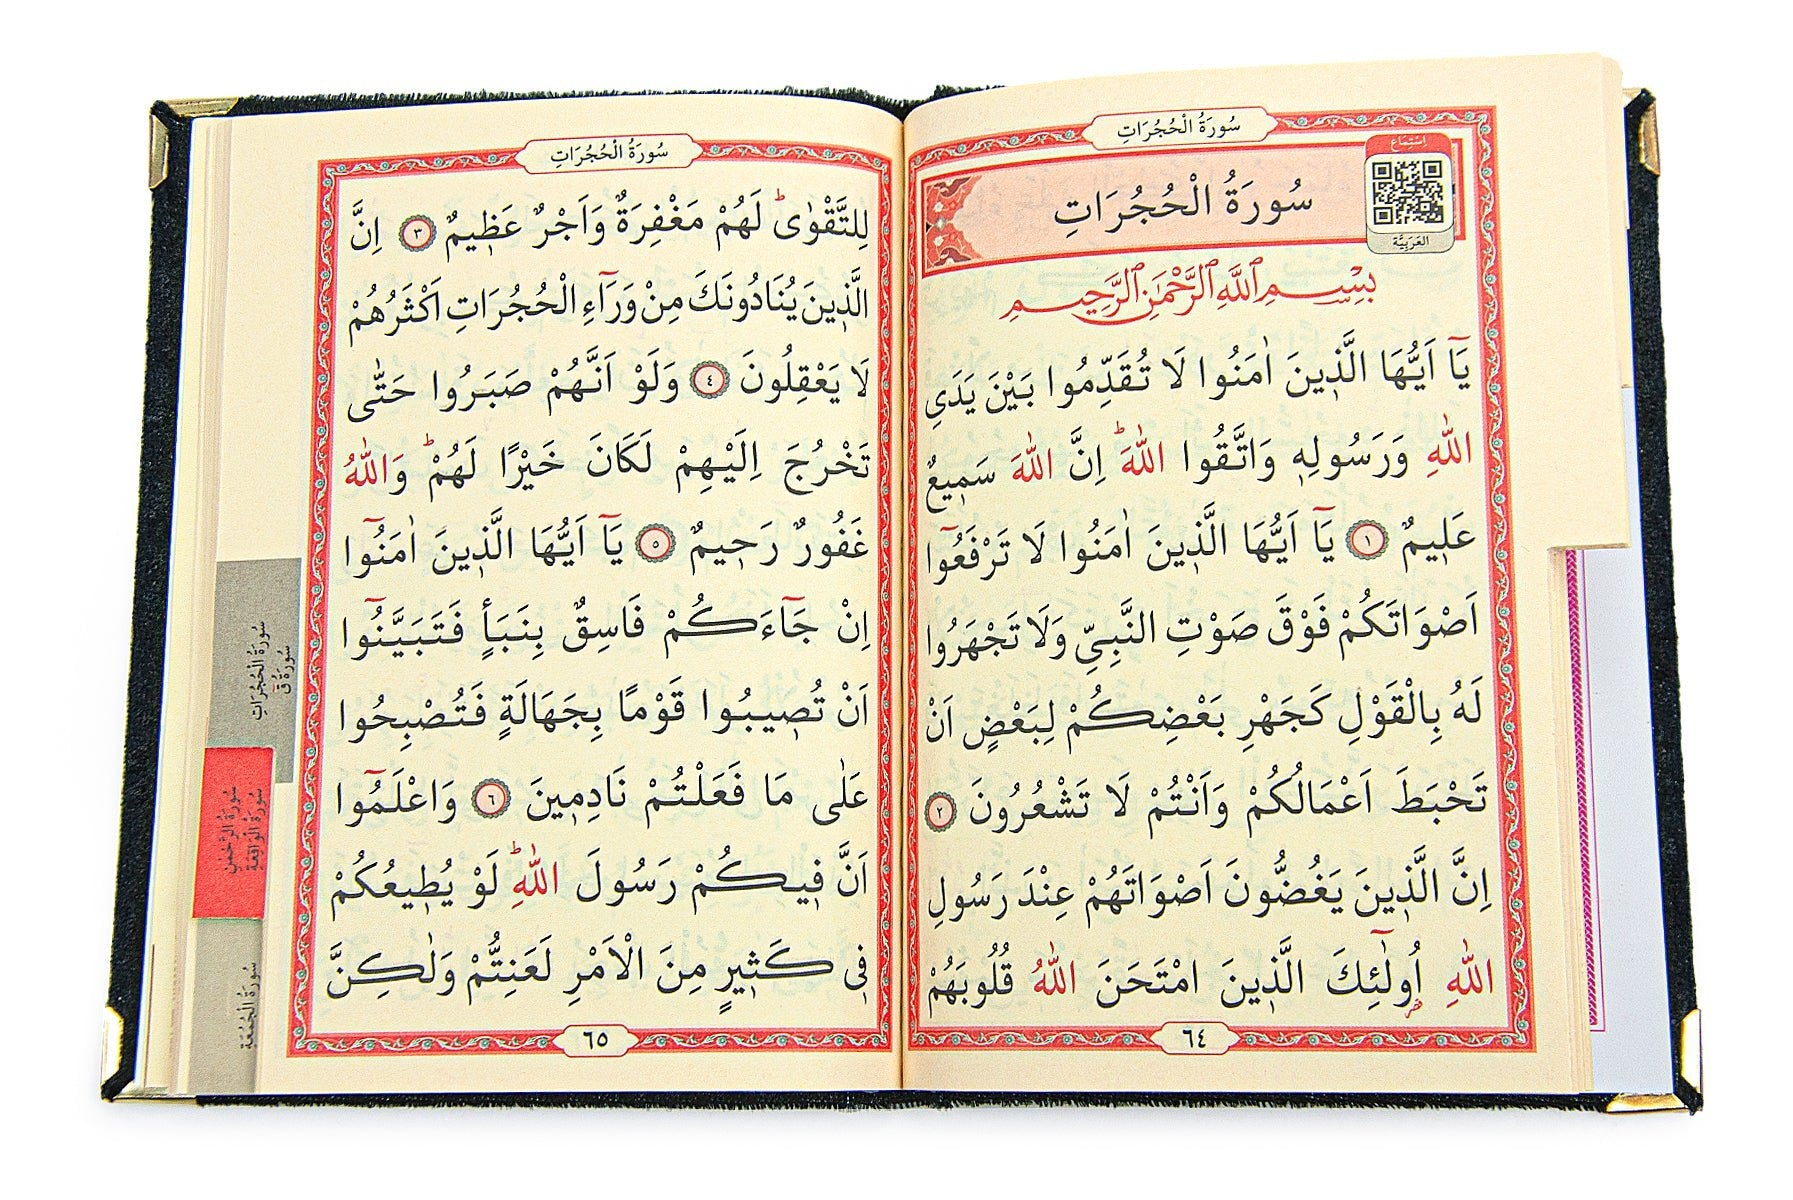 سُورَةُ الْحُجُرَاتِ
اِسْتِمَاع
سُورَةُ الْحُجُرَاتِ
اَلْعَرَبِيَّة
بِسْمِ ٱللَّهِ ٱلرَّحْمَٰنِ ٱلرَّحِيمِ
يَٓا اَيُّهَا الَّذ۪ينَ اٰمَنُوا لَا تُقَدِّمُوا بَيْنَ يَدَيِ
اللّٰهِ وَرَسُولِه۪ وَاتَّقُوا اللّٰهَۜ اِنَّ اللّٰهَ سَم۪يعٌ
عَل۪يمٌ ﴿١﴾ يَٓا اَيُّهَا الَّذ۪ينَ اٰمَنُوا لَا تَرْفَعُٓوا
اَصْوَاتَكُمْ فَوْقَ صَوْتِ النَّبِيِّ وَلَا تَجْهَرُوا
لَهُ بِالْقَوْلِ كَجَهْرِ بَعْضِكُمْ لِبَعْضٍ اَنْ
تَحْبَطَ اَعْمَالُكُمْ وَاَنْتُمْ لَا تَشْعُرُونَ ﴿٢﴾
اِنَّ الَّذ۪ينَ يَغُضُّونَ اَصْوَاتَهُمْ عِنْدَ رَسُولِ
اللّٰهِ اُو۬لٰٓئِكَ الَّذ۪ينَ امْتَحَنَ اللّٰهُ قُلُوبَهُمْ
٦٤
سُورَةُ الْحُجُرَاتِ
لِلتَّقْوٰىۜ لَهُمْ مَغْفِرَةٌ وَاَجْرٌ عَظ۪يمٌ ﴿٣﴾ اِنَّ
الَّذ۪ينَ يُنَادُونَكَ مِنْ وَرَٓاءِ الْحُجُرَاتِ اَكْثَرُهُمْ
لَا يَعْقِلُونَ ﴿٤﴾ وَلَوْ اَنَّهُمْ صَبَرُوا حَتّٰى
تَخْرُجَ اِلَيْهِمْ لَكَانَ خَيْرًا لَهُمْۜ وَاللّٰهُ
غَفُورٌ رَح۪يمٌ ﴿٥﴾ يَٓا اَيُّهَا الَّذ۪ينَ اٰمَنُٓوا
اِنْ جَٓاءَكُمْ فَاسِقٌ بِنَبَأٍ فَتَبَيَّنُٓوا
اَنْ تُص۪يبُوا قَوْمًا بِجَهَالَةٍ فَتُصْبِحُوا
عَلٰى مَا فَعَلْتُمْ نَادِم۪ينَ ﴿٦﴾ وَاعْلَمُٓوا
اَنَّ ف۪يكُمْ رَسُولَ اللّٰهِۜ لَوْ يُط۪يعُكُمْ
ف۪ي كَث۪يرٍ مِنَ الْاَمْرِ لَعَنِتُّمْ وَلٰكِنَّ
٦٥
سُورَةُ الْحُجُرَاتِ
سُورَةُ قٓ
سُورَةُ الرَّحْمٰنِ
سُورَةُ الْوَاقِعَةِ
سُورَةُ الْجُمُعَةِ